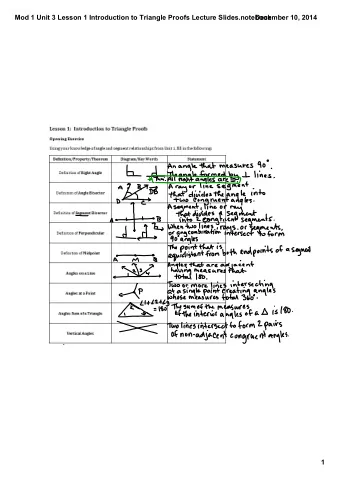 Mod 1 Unit 3 Lesson 1 Introduction to Triangle Proofs Lecture Slides.notebook
December 10, 2014
Lesson 1: Introduction to Triangle Proofs
Opening Exercise
Using your knowledge of angle and segment relationships from Unit 1, fill in the following:
Definition/Property/Theorem Diagram/Key Words Statement
Definition of Right Angle
An angle that measures 90°.
The angle formed by ⊥ lines.
Thm. All right angles are ≅
Definition of Angle Bisector
A B D C DB
A ray or line segment
that divides the angle into
two congruent angles.
Definition of Segment Bisector
A B
A segment, line or ray
that divides a segment
into 2 congruent segments.
Definition of Perpendicular
When two lines, rays, or segments,
or any combination intersect to form
90° angles
Definition of Midpoint
A M B
The point that is
equidistant from both endpoints of a segment
Angles on a Line
Angles that are adjacent
having measures that
total 180.
Angles at a Point
P
Two or more lines intersecting
at a single point creating angles
whose measures total 360°.
Angles Sum of a Triangle
∠1+∠2+∠3
= 180
The sum of the measures
of the interior angles of a △ is 180.
Vertical Angles
Two lines intersect to form 2 pairs
of non-adjacent congruent angles.
1